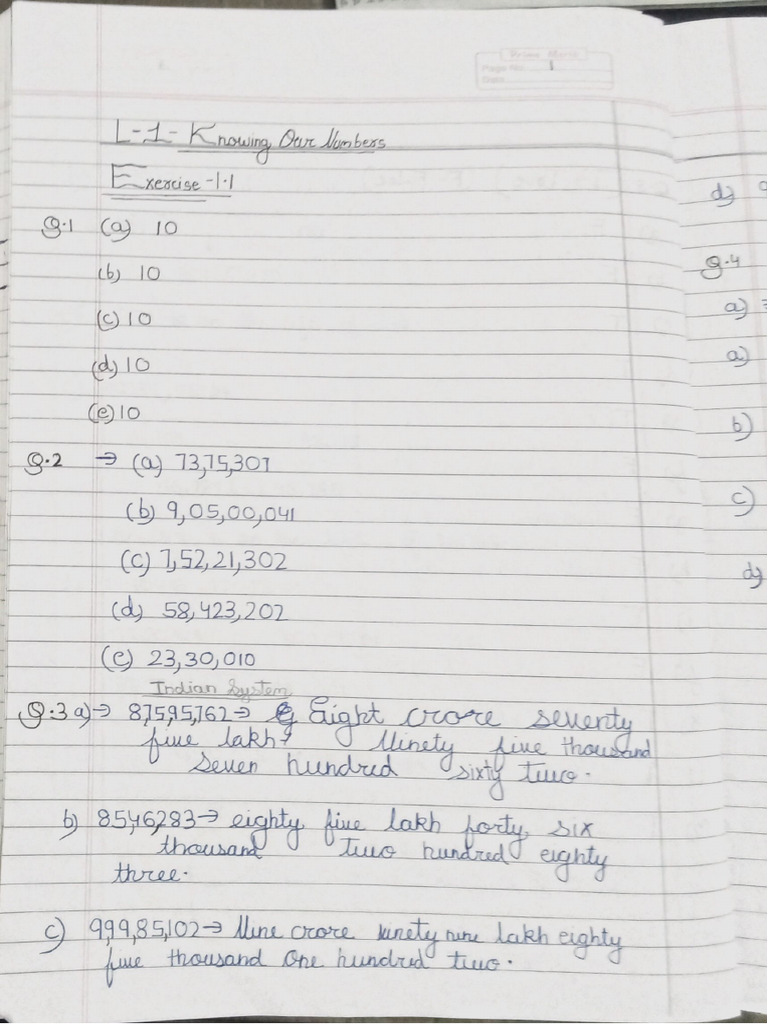 Prime Marks
Page No. 1
Date
L-1- Knowing Our Numbers
Exercise -1.1
Q.1 (a) 10
(b) 10
(c) 10
(d) 10
(e) 10
Q.2 → (a) 73,75,307
(b) 9,05,00,041
(c) 7,52,21,302
(d) 58,423,202
(e) 23,30,010
Indian System
Q.3 a) → 8,75,95,762 → Eight crore seventy
five lakh Ninety five thousand
Seven hundred sixty two.
b) 85,46,283 → eighty five lakh forty six
thousand two hundred eighty
three.
c) 9,99,85,102 → Nine crore ninety nine lakh eighty
five thousand One hundred two.
d)
Q.4
a)
a)
b)
c)
d)